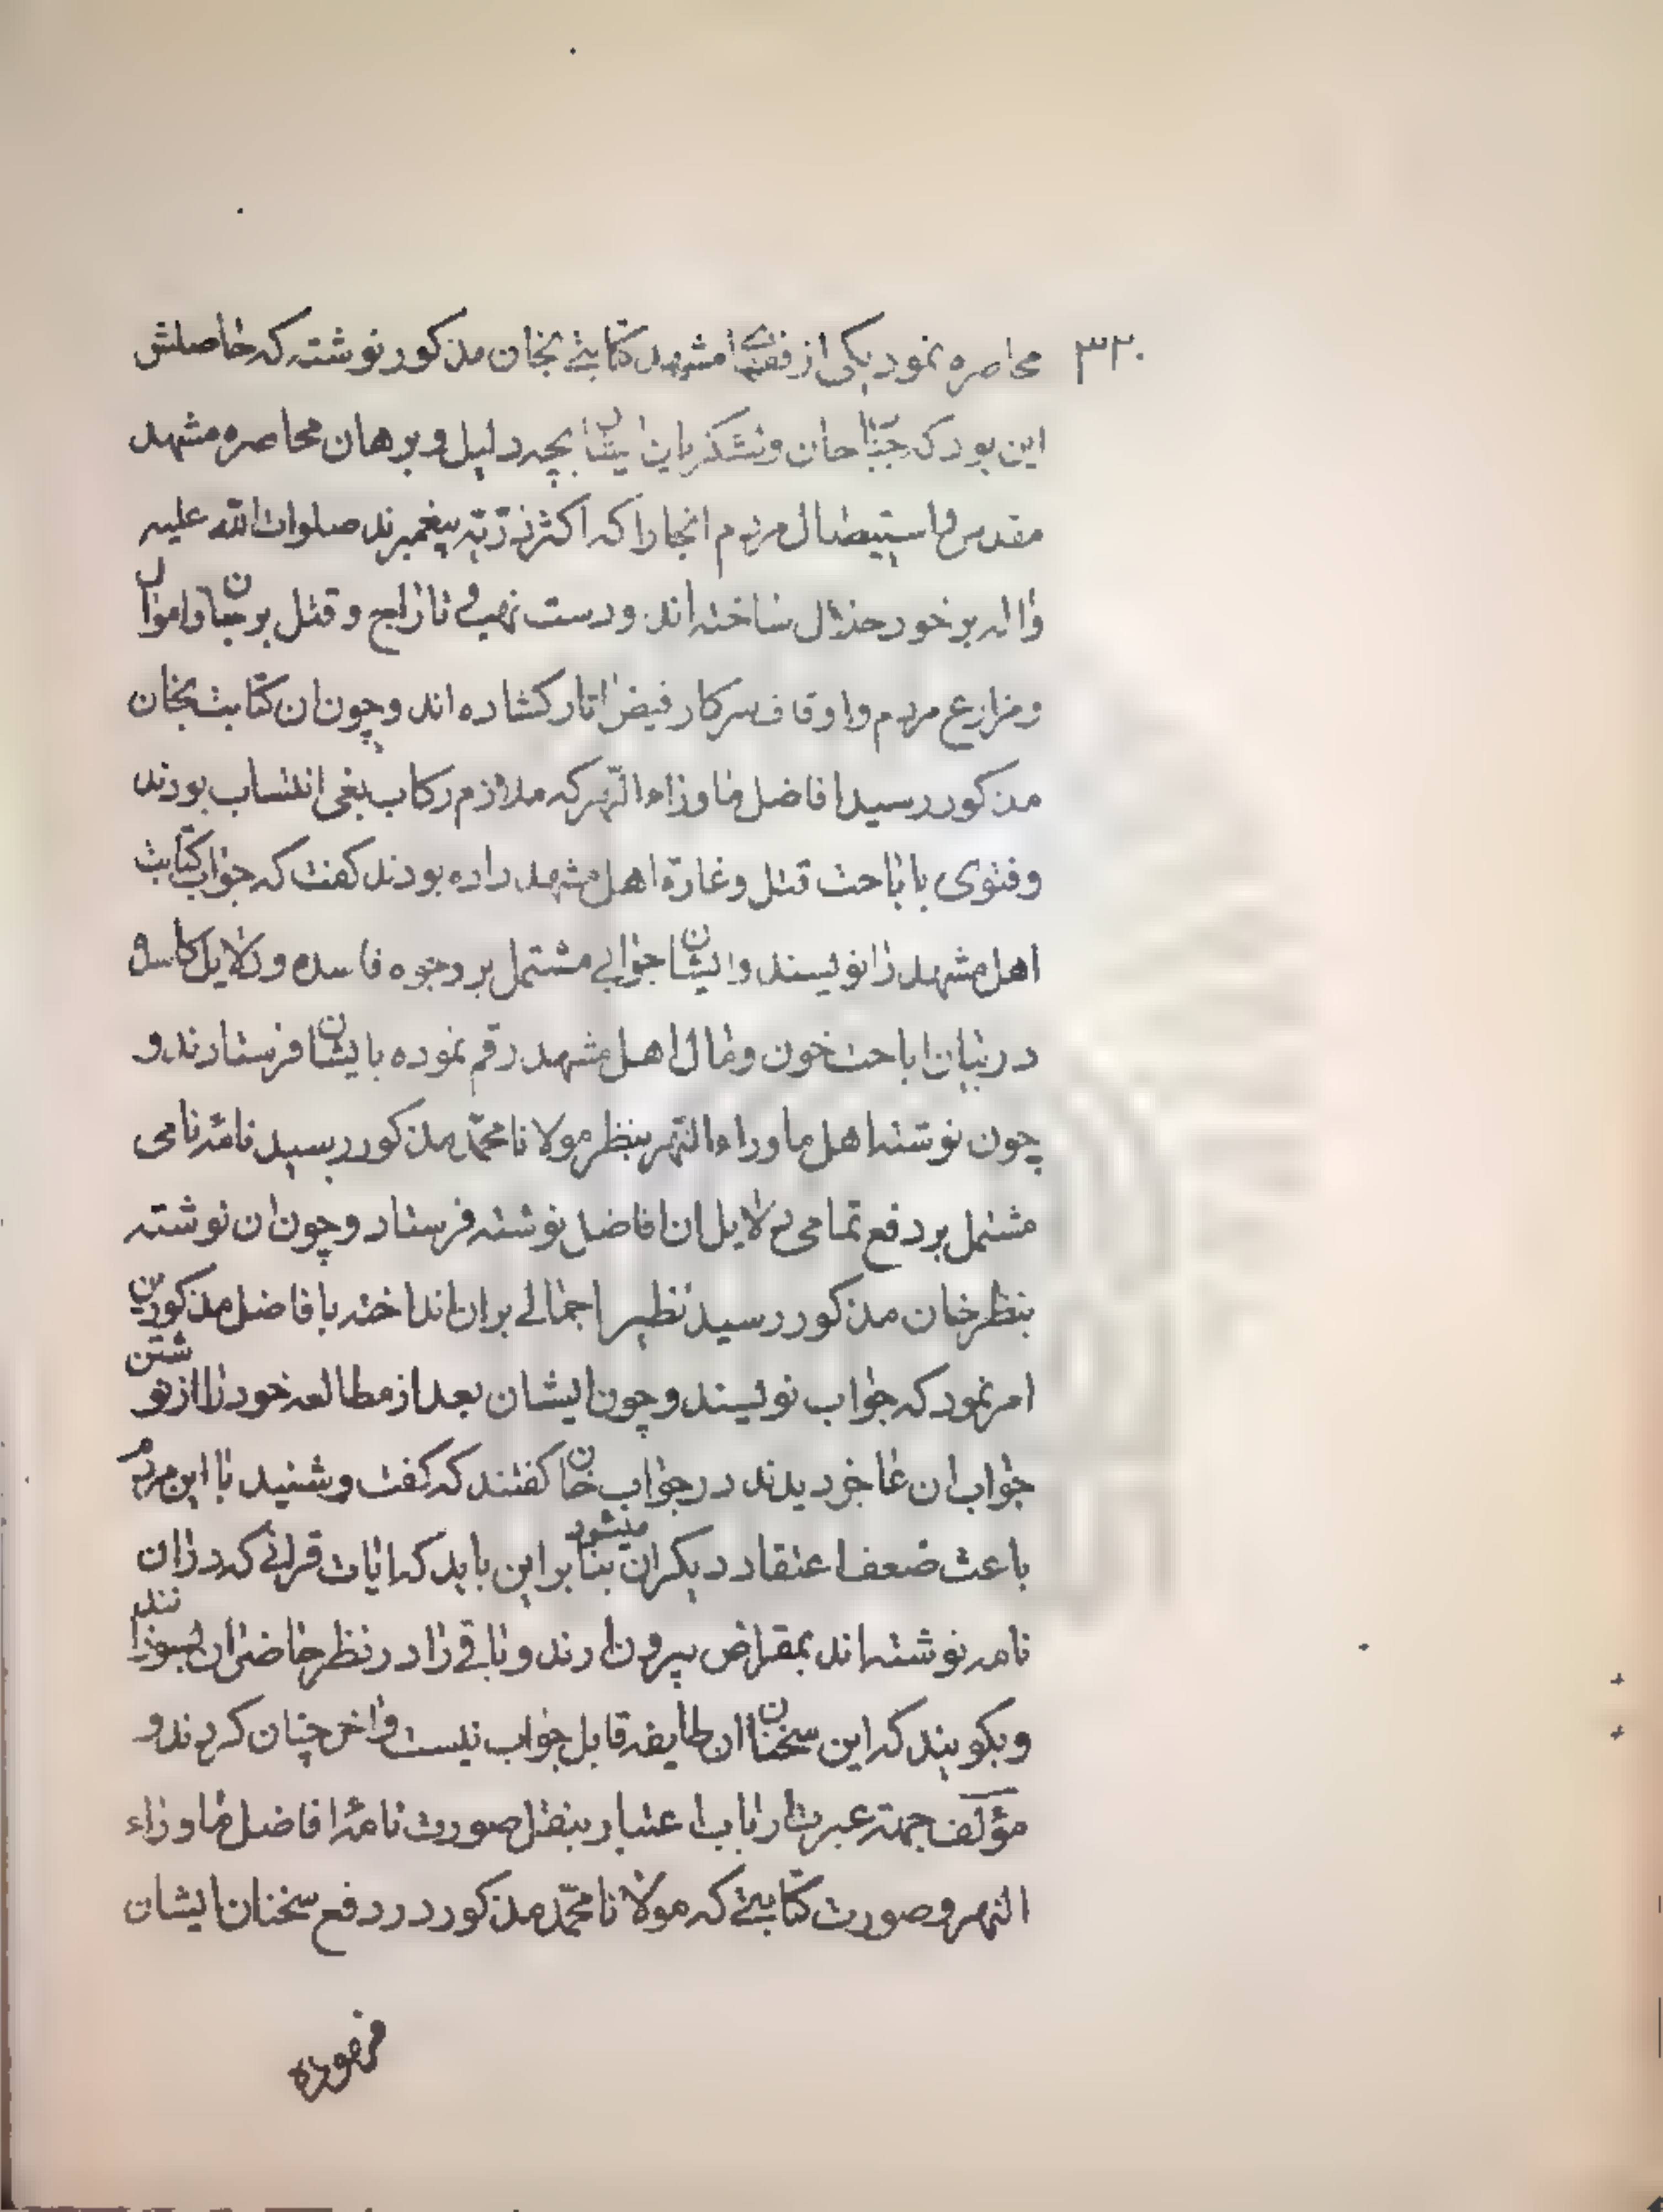 ۳۲۰
محاصره نمود یکی از فقهاء مشهد کتابتے بخان مذکور نوشته که حاصلش
این بود که جناب خان و لشکریان ایشان بچه دلیل و برهان محاصره مشهد
مقدس و استیصال مردم انجا را که اکثر ذریّه پیغمبرند صلوات الله علیه
واله بر خود حلال ساخته اند و دست نهب و تاراج و قتل بر جان و اموال
و مزارع مردم و اوقاف سرکار فیض اثار کشاده اند و چون ان کتابت بخان
مذکور رسید افاضل ماوراء النّهر که ملازم رکاب بغی انتساب بودند
و فتوی باباحت قتل و غارة اهل مشهد داده بودند کفت که جواب کتابت
اهل مشهد را نویسند و ایشان جوابے مشتمل بر وجوه فاسده و دلایل کاسده
در بیان اباحت خون و مال اهل مشهد رقم نموده بایشان فرستادند و
چون نوشته اهل ماوراء النّهر بنظر مولانا محمّد مذکور رسید نامه نامی
مشتمل بر دفع تمامی دلایل ان افاضل نوشته فرستاد و چون ان نوشته
بنظر خان مذکور رسید نظیر اجمالے بران انداخته با فاضل مذکورین
امر نمود که جواب نویسند و چون ایشان بعد از مطالعه خود را از نوشتن
جواب ان عاجز دیدند در جواب خان کفتند که کفت و شنید با این مردم
باعث ضعف اعتقاد دیکران میشود بنا بر این باید که ایات قرانے که در ان
نامه نوشته اند بمقراض بیرون ارند و باقے را در نظر حاضران بسوزانند
و بکویند که این سخنان ان طایفه قابل جواب نیست و اخر چنان کردند و
مؤلف جهة عبرت ارباب اعتبار بنقل صورت نامه افاضل ماوراء
النهر و صورت کتابتے که مولانا محمّد مذکور در دفع سخنان ایشان
فرموده